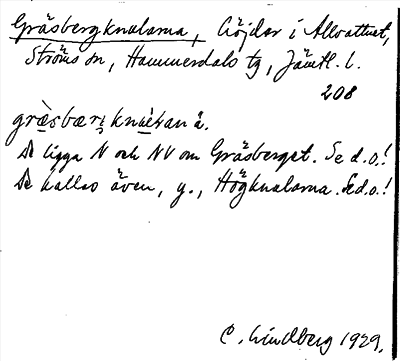 Gräsbergknularna, höjder i Allvattnet,
Ströms sn, Hammerdals tg, Jämtl. l.
208
De ligga N och NV om Gräsberget. Se d.o.!
De kallas även, y., Högknularna. Se d.o.!
C. Lindberg 1929.